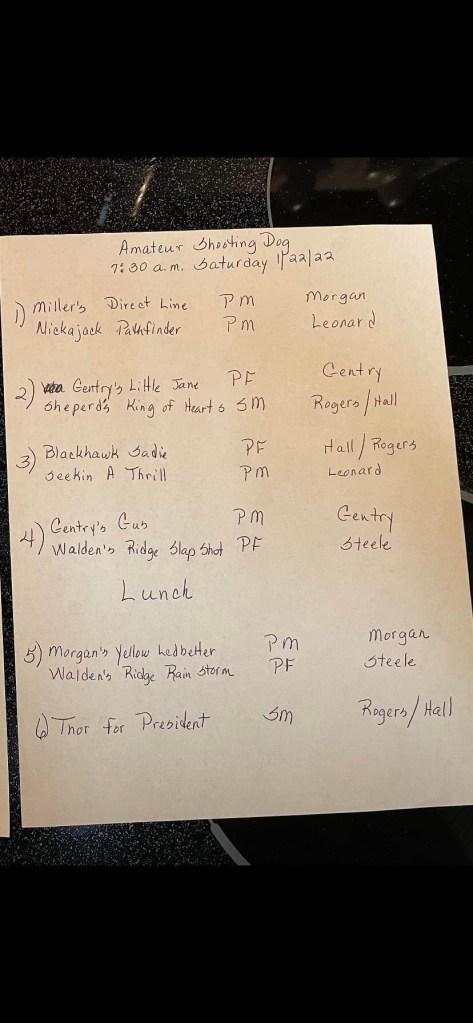 Amateur Shooting Dog
7:30 a.m. Saturday 1/22/22
1) Miller's Direct Line PM Morgan
Nickajack Pathfinder PM Leonard
2) Gentry's Little Jane PF Gentry
Sheperd's King of Hearts SM Rogers/Hall
3) Blackhawk Sadie PF Hall/Rogers
Seekin A Thrill PM Leonard
4) Gentry's Gus PM Gentry
Walden's Ridge Slap Shot PF Steele
Lunch
5) Morgan's Yellow Ledbetter PM Morgan
Walden's Ridge Rain Storm PF Steele
6) Thor for President SM Rogers/Hall